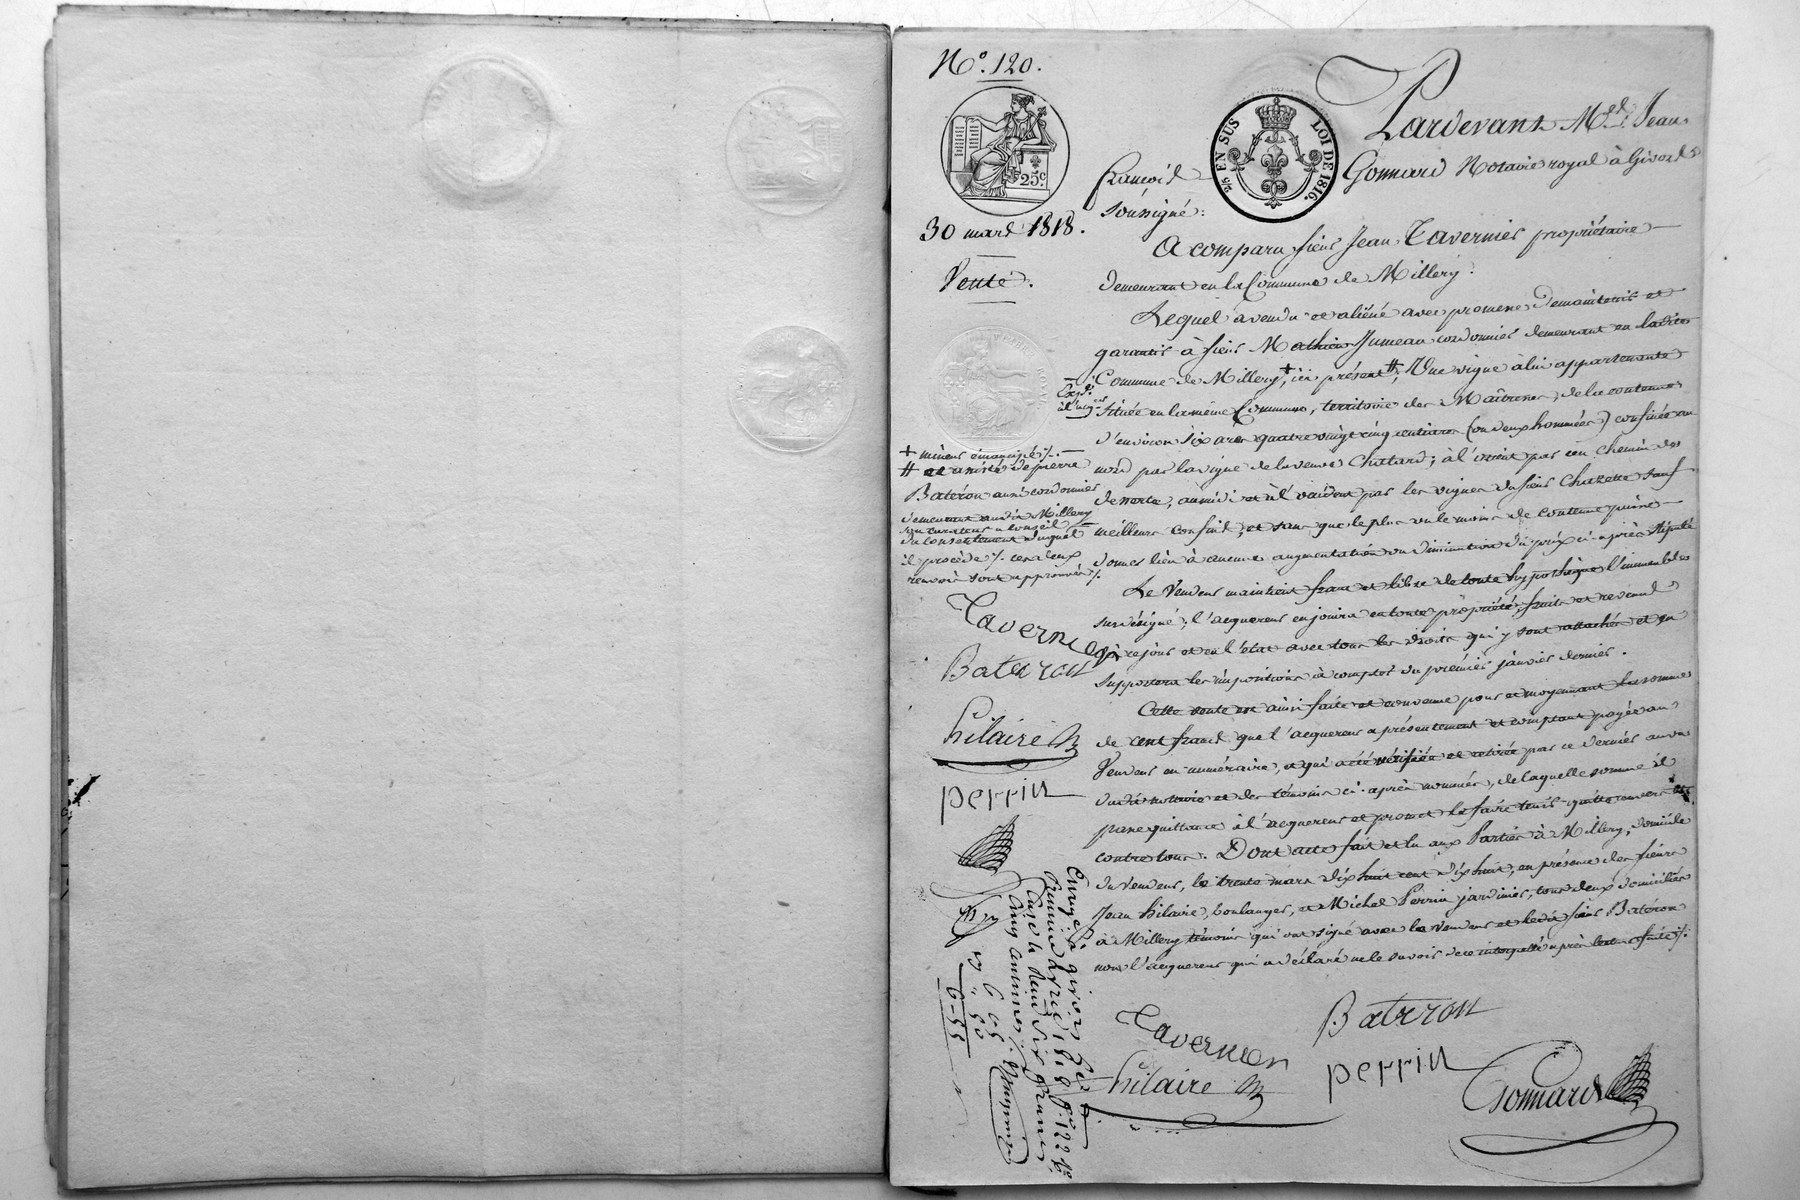 N.º 120.
25c
25 EN SUS LOI DE 1816.
30 mars 1818.
Vente.
Pardevant Me. Jean
François Gonnard Notaire royal à Givors
soussigné:
A comparu sieur Jean Tavernier propriétaire
demeurant en la Commune de Millery.
Lequel a vendu et aliéné avec promesse de maintenir et
garantir à sieur Mathieu Jumeau cordonnier demeurant en ladite
Commune de Millery +, ici présent #, Une vigne à lui appartenante
située en la même Commune, territoire des de la contenue
d'environ six ares quatre vingt cinq centiares (ou deux hommées) confinée au
nord par la vigne de la veuve Chatard; à l'orient par un Chemin de
desserte, au midi et à l'occident par les vignes du sieur Chazette sauf
meilleurs confins, et sans que le plus ou le moins de contenue puisse
donner lieu à aucune augmentation ou diminution du prix ci-après stipulé
Le Vendeur maintient franc et libre de toute hypothèque l'immeuble
sus désigné; l'acquereur en jouira en toute propriété, fruits et revenus
de ce jour et en l'état avec tous les droits qui y sont attachés et en
supportera les impositions à compter du premier janvier dernier.
Cette vente est ainsi faite et convenue pour et moyennant la somme
de cent francs que l'acquereur a présentement et comptant payée au
Vendeur en numéraire, et qui a été vérifiée et retirée par ce dernier au vu
dudit notaire et des témoins ci-après nommés, de laquelle somme il
passe quittance à l'acquereur et promet le faire tenir quitte envers et
contre tous. Dont acte fait et lu aux Parties à Millery, domicile
du vendeur, le trente mars dix huit cent dix huit, en présence des sieurs
Jean hilaire, boulanger, et Michel Perrin jardinier, tous deux domiciliés
à Millery témoins qui ont signé avec le vendeur et ledit sieur Batéron
non l'acquereur qui a déclaré ne le savoir de ce interpellé après lecture faite ./.
Tavernier Bateron
hilaire perrin Gonnard
Exp.
à l'acq.
+ mineur émancipé ./.
# et assisté de pierre
Batéron aussi cordonnier
demeurant audit Millery
son curateur conseil
du consentement duquel
il procède ./. ces deux
renvois sont approuvés ./.
Tavernier
Bateron
hilaire
perrin
Enregistré à givors le
premier avril 1818 f.º 122
reçu six francs
cinq centimes
6 05
50
6-55